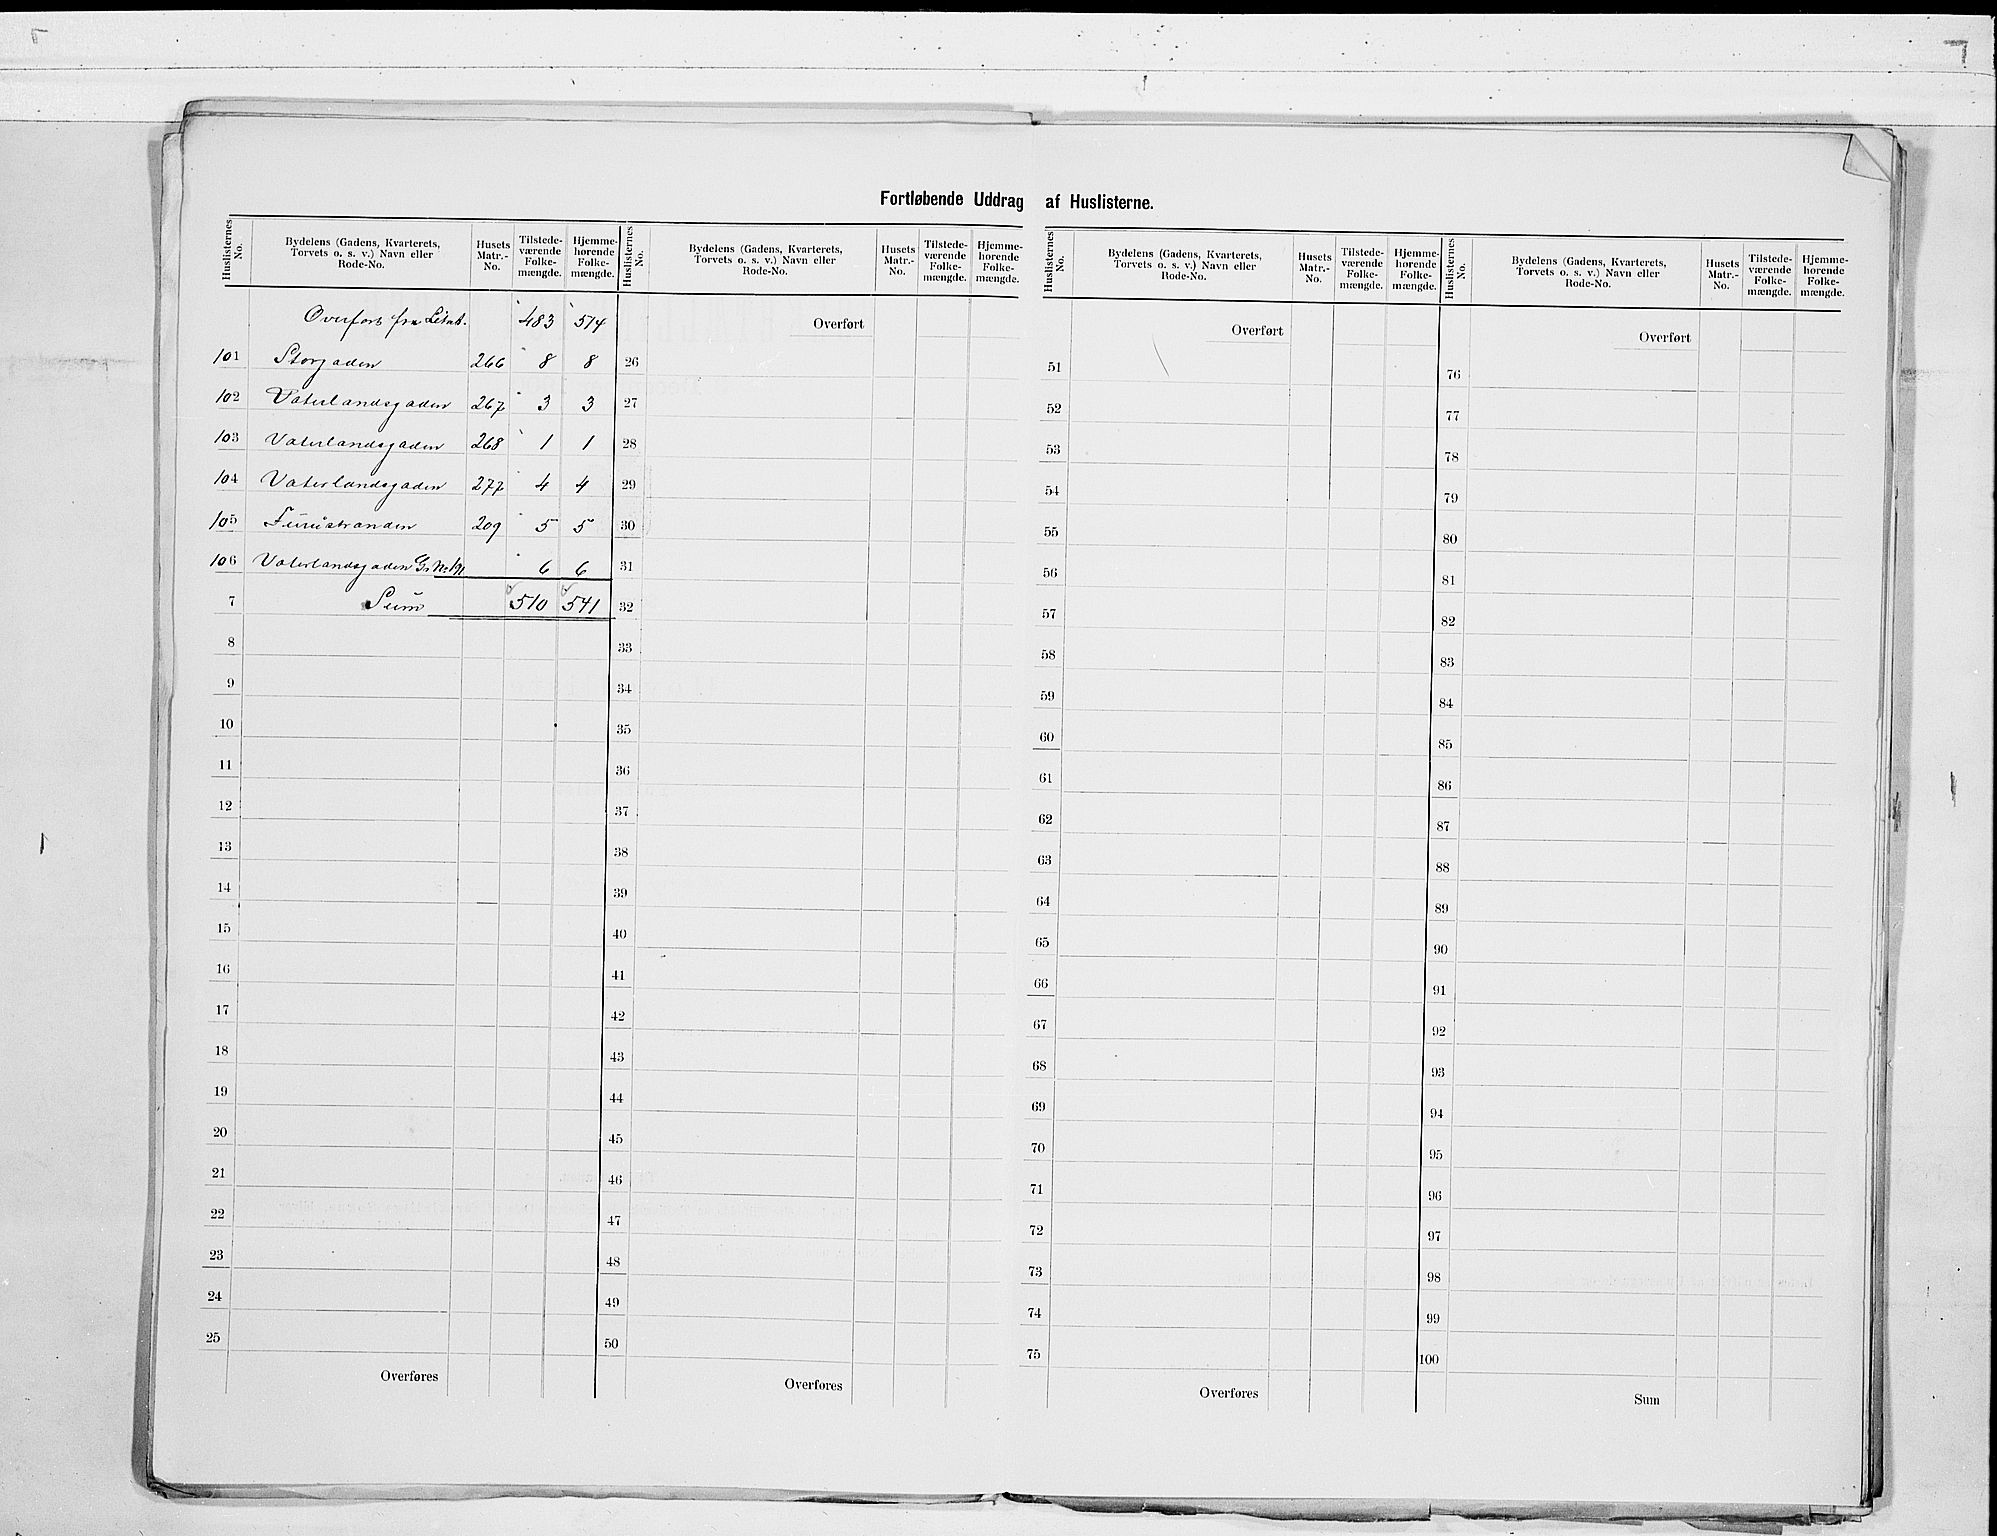 Fortløbende Uddrag af Huslisterne.
Huslisternes No. Bydelens (Gadens, Kvarterets, Torvets o. s. v.) Navn eller Rode-No. Husets Matr.-No. Tilstede-værende Folke-mængde. Hjemme-hørende Folke-mængde.
Overført fra 483 514
101 Storgaden 266 8 8
102 Vaterlandsgaden 267 3 3
103 Vaterlandsgaden 268 1 1
104 Vaterlandsgaden 277 4 4
105 209 5 5
106 Vaterlandsgaden 6 6
7 Sum 510 541
8
9
10
11
12
13
14
15
16
17
18
19
20
21
22
23
24
25
Overføres
Huslisternes No. Bydelens (Gadens, Kvarterets, Torvets o. s. v.) Navn eller Rode-No. Husets Matr.-No. Tilstede-værende Folke-mængde. Hjemme-hørende Folke-mængde.
Overført
26
27
28
29
30
31
32
33
34
35
36
37
38
39
40
41
42
43
44
45
46
47
48
49
50
Overføres
Huslisternes No. Bydelens (Gadens, Kvarterets, Torvets o. s. v.) Navn eller Rode-No. Husets Matr.-No. Tilstede-værende Folke-mængde. Hjemme-hørende Folke-mængde.
Overført
51
52
53
54
55
56
57
58
59
60
61
62
63
64
65
66
67
68
69
70
71
72
73
74
75
Overføres
Huslisternes No. Bydelens (Gadens, Kvarterets, Torvets o. s. v.) Navn eller Rode-No. Husets Matr.-No. Tilstede-værende Folke-mængde. Hjemme-hørende Folke-mængde.
Overført
76
77
78
79
80
81
82
83
84
85
86
87
88
89
90
91
92
93
94
95
96
97
98
99
100
Sum